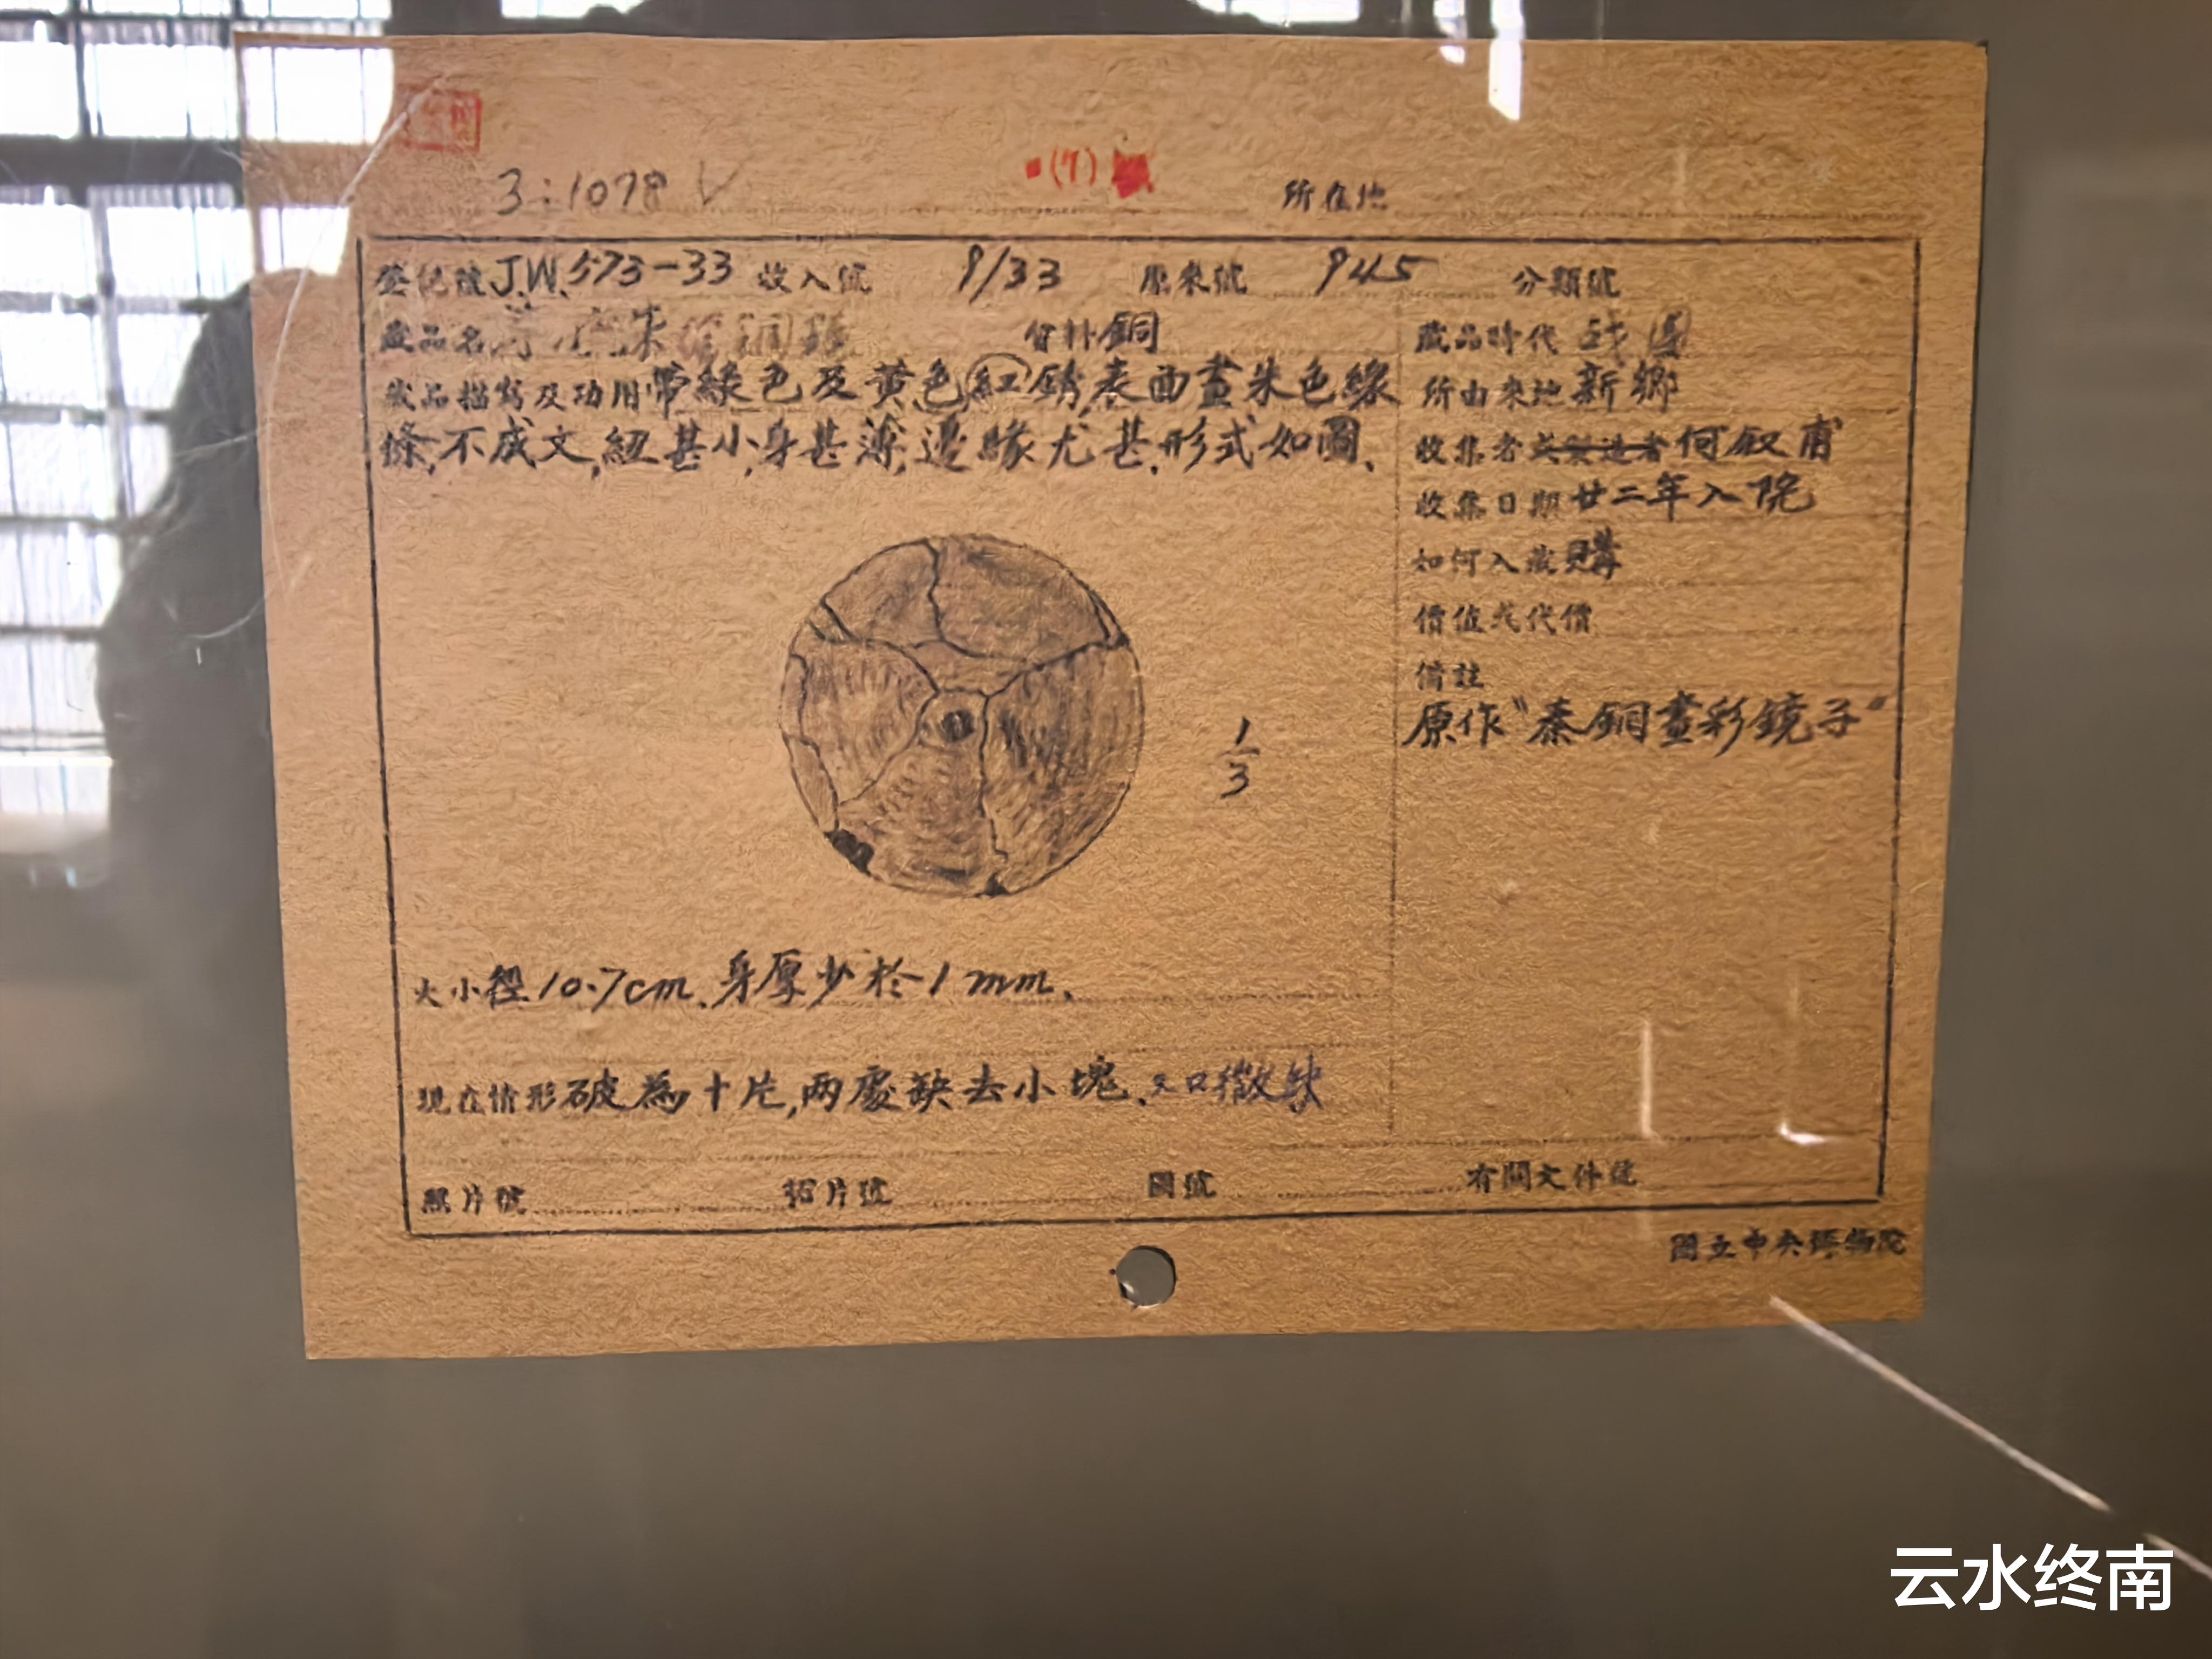 3:1078 √
(7)
所在地
登記號 J.W.573-33 收入號 9/33 原來號 945 分類號
藏品名 朱 銅鏡 質料 銅
藏品時代 戰國
藏品描寫及功用 帶綠色及黃色紅銹,表面畫朱色緣
條,不成文,紐甚小,身甚薄,邊緣尤甚.形式如圖.
所由來地 新鄉
收集者或製造者 何叙甫
收集日期 廿二年入院
如何入藏 購
價值或代價
備註
原作“秦銅畫彩鏡子”
1/3
大小 徑10.7cm.身厚少於1mm.
現在情形 破為十片,两處缺去小塊.又口微缺
照片號 拓片號 圖號 有關文件號
國立中央博物院
云水终南